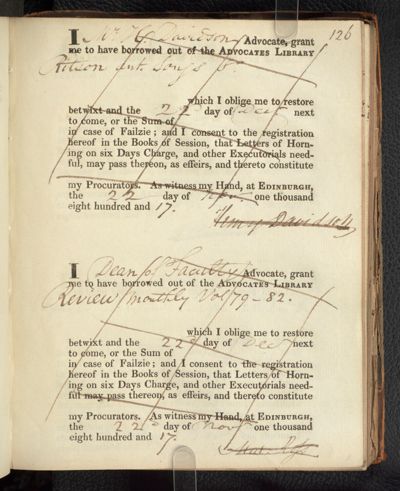 126
I Mr H Davidson Advocate, grant
me to have borrowed out of the ADVOCATES LIBRARY
Ritson Songs
which I oblige me to restore
betwixt and the 22 day of next
to come, or the Sum of
in case of Failzie; and I consent to the registration
hereof in the Books of Session, that Letters of Horn-
ing on six Days Charge, and other Executorials need-
ful, may pass thereon, as effeirs, and thereto constitute
my Procurators. As witness my Hand, at EDINBURGH,
the 22 day of one thousand
eight hundred and 17.
Henry Davidson
I Dean of Faculty Advocate, grant
me to have borrowed out of the ADVOCATES LIBRARY
Review Monthly Vol 79-82.
which I oblige me to restore
betwixt and the 22d day of Decr next
to come, or the Sum of
in case of Failzie; and I consent to the registration
hereof in the Books of Session, that Letters of Horn-
ing on six Days Charge, and other Executorials need-
ful may pass thereon, as effeirs, and thereto constitute
my Procurators. As witness my Hand, at EDINBURGH,
the 22d day of Novr one thousand
eight hundred and 17.